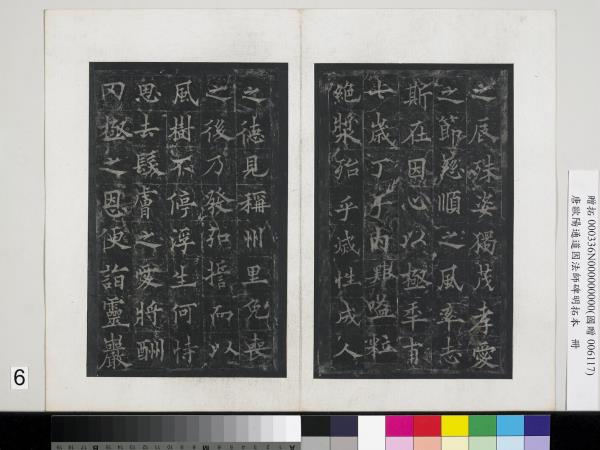 之辰殊姿獨茂孝愛
之節慈順之風率志
斯在因心以極年甫
七歲丁于內艱嗌粒
絶漿殆乎滅性成人
之德見稱州里免喪
之後乃發弘誓而以
風樹不停浮生何恃
思去髮膚之愛將酬
罔極之恩便詣靈巖
贈拓 000336N000000000(國贈 006117)
唐歐陽通道因法師碑明拓本 冊
6